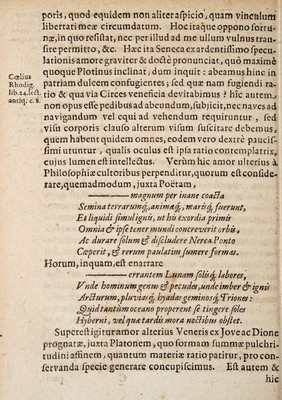 poris, quod equidem non aliter aspicio, quam vinculum
libertati meæ circumdatum. Hoc itaque oppono fortu-
næ, in quo resistat, nec per illud ad me ullum vulnus tran-
sire permitto, &c. Hæc ita Seneca ex ardentissimo specu-
lationis amore graviter & doctè pronunciat, quò maximè
quoque Plotinus inclinat, dum inquit: abeamus hinc in
patriam dulcem confugientes, sed quæ nam fugiendi ra-
tio & qua via Circes veneficia devitabimus? hîc autem
non opus esse pedibus ad abeundum, subjicit, nec naves ad
navigandum vel equi ad vehendum requiruntur, sed
visu corporis clauso alterum visum suscitare debemus,
quem habent quidem omnes, eodem vero dextrè paucis-
simi utuntur, qualis oculus est ipsa ratio contemplatrix,
cujus lumen est intellectus. Verùm hic amor alterius à
Philosophiæ cultoribus perpenditur, quorum est conside-
rare, quemadmodum, juxta Poëtam,
Cœlius
Rhodig.
lib. 24. lect.
antiq. c. 8.
— magnum per inane coacta
Semina terrarumq́, animæq́, mariśq, fuerunt,
Et liquidi simul ignis, ut his exordia primis
Omnia & ipse tener mundi concreverit orbis,
Ac durare solum & discludere Nerea Ponto
Cœperit, & rerum paulatim sumere formas.
Horum, inquam, est enarrare
— errantem Lunam solisq́, labores,
Unde hominum genus & pecudes, unde imber & ignis
Arcturum, pluviasq́, hyadas geminosq́, Triones:
Quid tantùm oceano properent se tingere soles
Hyberni, vel quæ tardis mora noctibus obstet.
Superest igitur amor alterius Veneris ex Jove ac Dione
prognatæ, juxta Platonem, quo formam summæ pulchri-
tudini affinem, quantum materiæ ratio patitur, pro con-
servanda specie generare concupiscimus. Est autem &
hic